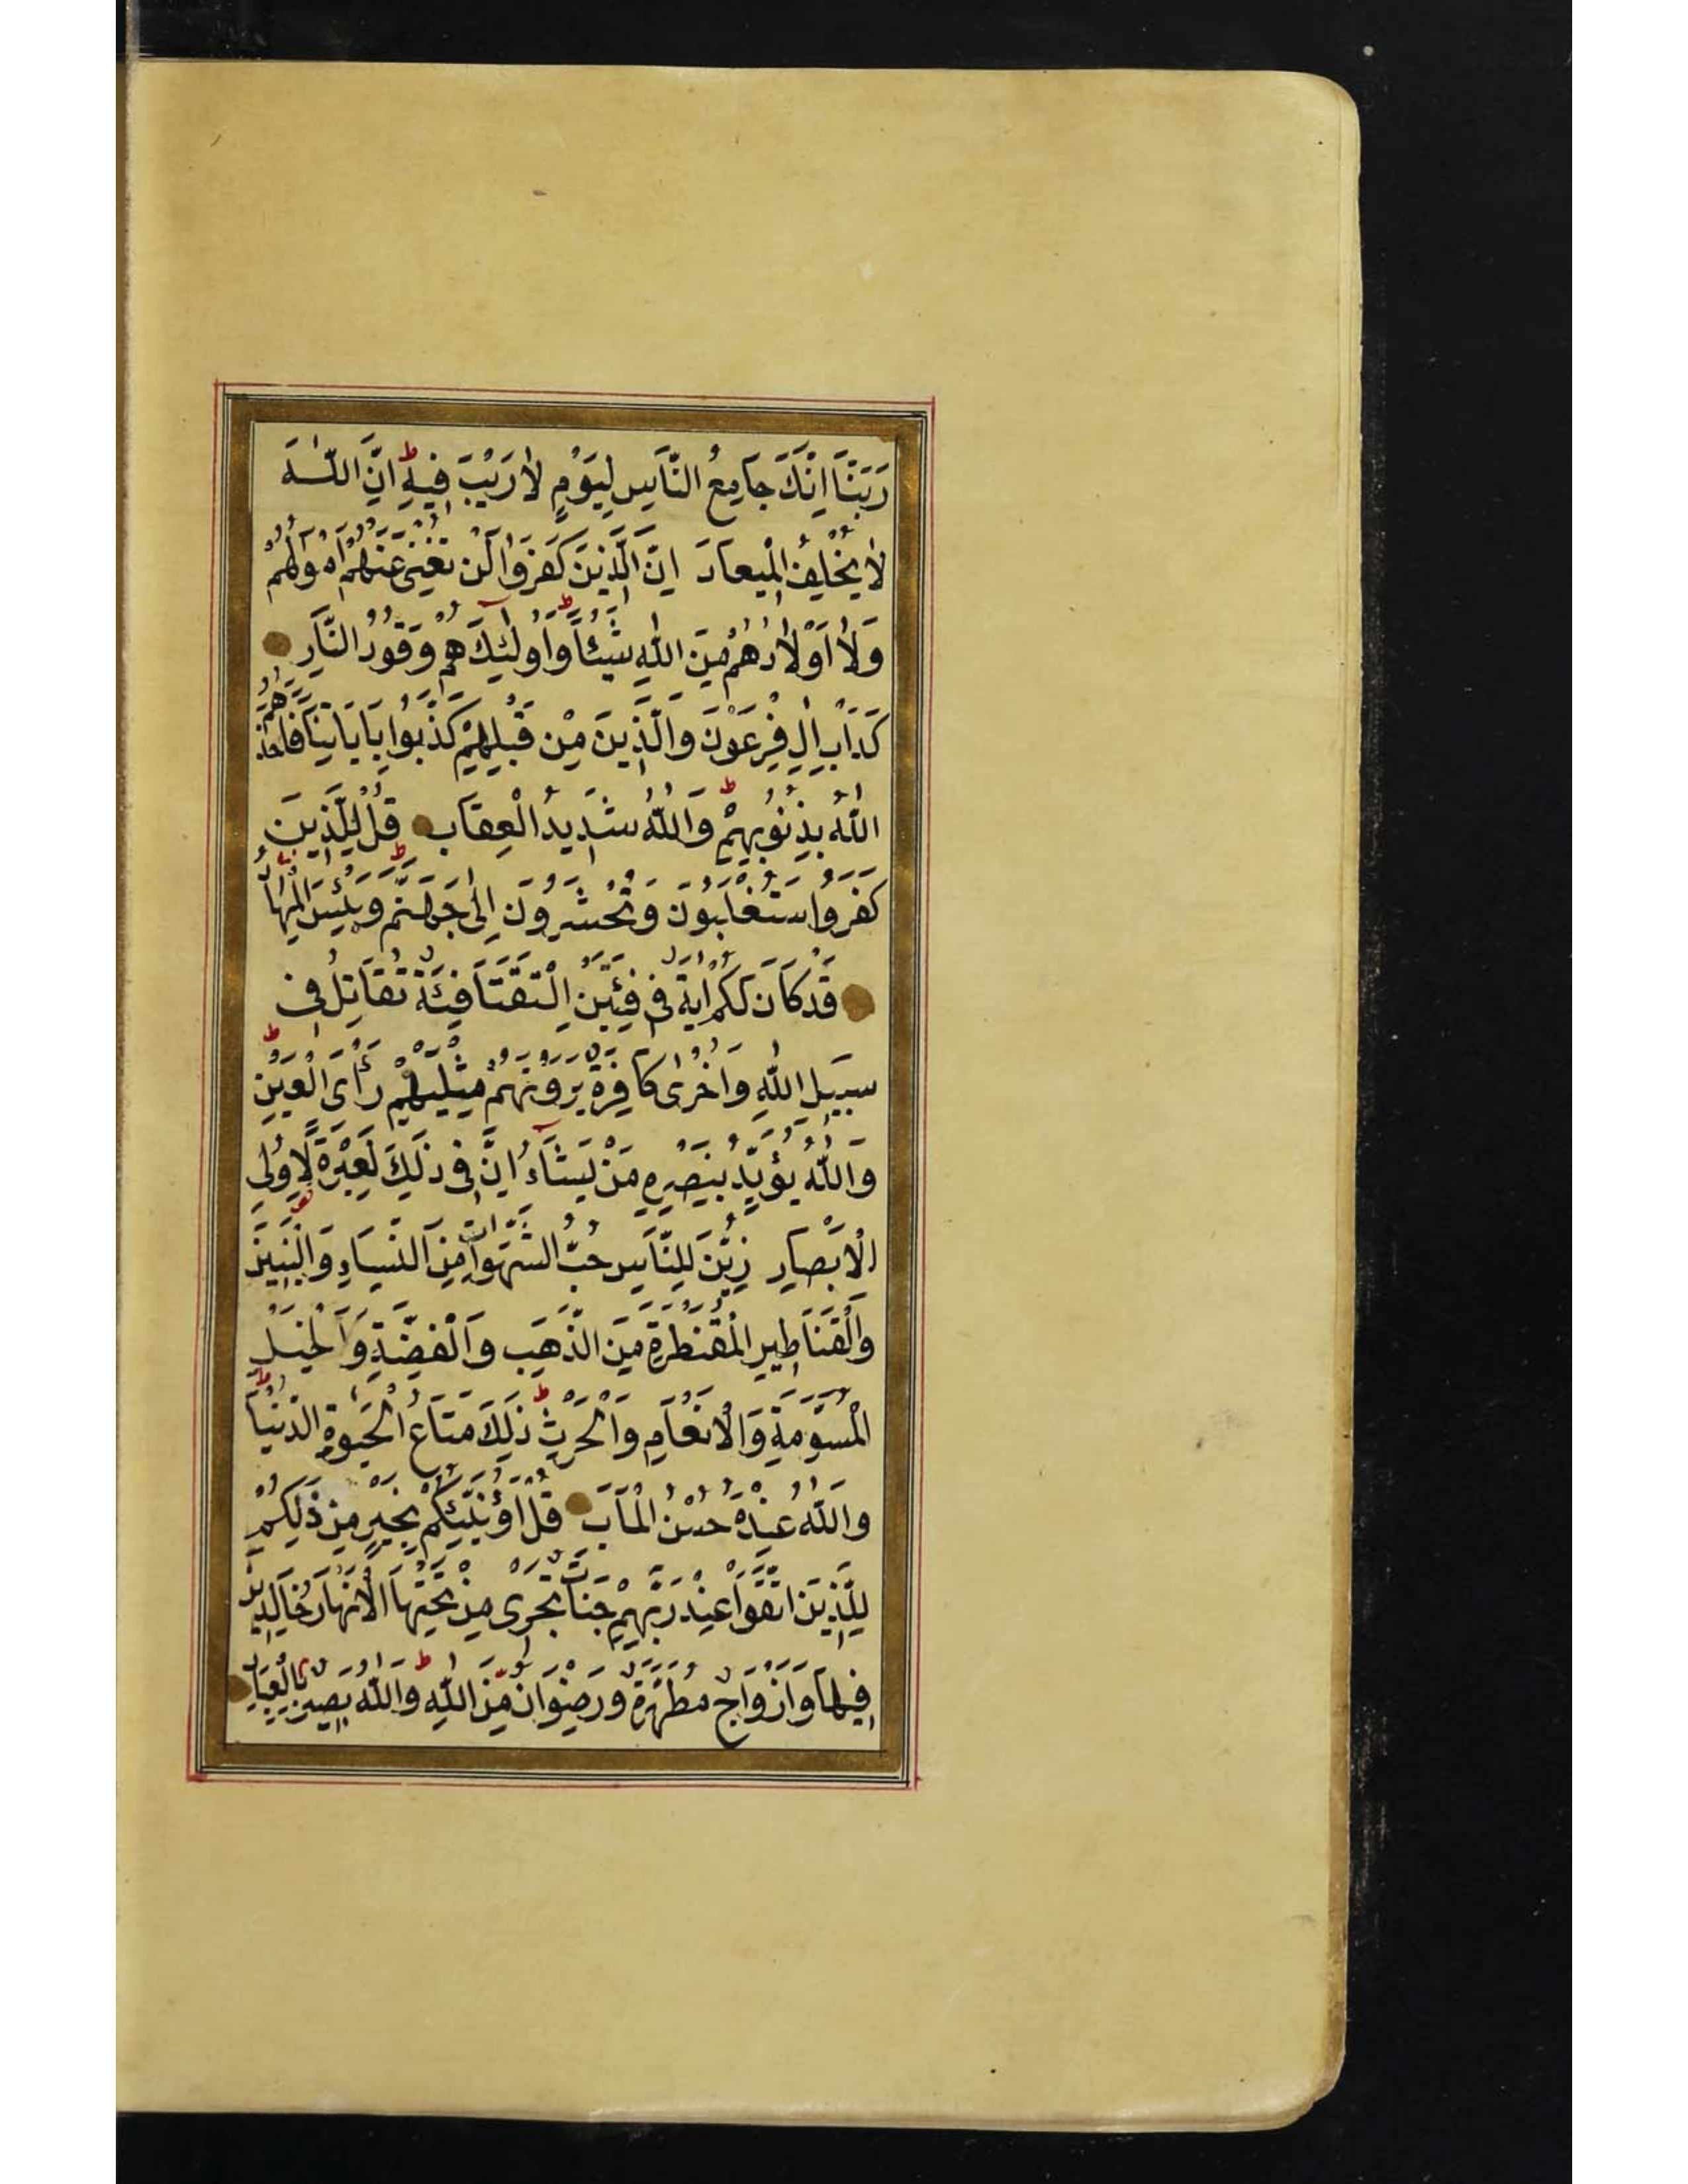 رَبَّنَا اِنَّكَ جَامِعُ النَّاسِ لِيَوْمٍ لَا رَيْبَ فِيهِ ط اِنَّ اللّٰهَ
لَا يُخْلِفُ الْمِيعَادَ اِنَّ الَّذِينَ كَفَرُوا لَنْ تُغْنِيَ عَنْهُمْ اَمْوَالُهُمْ
وَلَا اَوْلَادُهُمْ مِنَ اللّٰهِ شَيْئًا ط وَاُولٰئِكَ هُمْ وَقُودُ النَّارِ
كَدَاْبِ اٰلِ فِرْعَوْنَ وَالَّذِينَ مِنْ قَبْلِهِمْ كَذَّبُوا بِاٰيَاتِنَا فَاَخَذَهُمُ
اللّٰهُ بِذُنُوبِهِمْ ط وَاللّٰهُ شَدِيدُ الْعِقَابِ قُلْ لِلَّذِينَ
كَفَرُوا سَتُغْلَبُونَ وَتُحْشَرُونَ اِلٰى جَهَنَّمَ ط وَبِئْسَ الْمِهَادُ
قَدْ كَانَ لَكُمْ اٰيَةٌ فِي فِئَتَيْنِ الْتَقَتَا فِئَةٌ تُقَاتِلُ فِي
سَبِيلِ اللّٰهِ وَاُخْرٰى كَافِرَةٌ يَرَوْنَهُمْ مِثْلَيْهِمْ رَأْيَ الْعَيْنِ ط
وَاللّٰهُ يُؤَيِّدُ بِنَصْرِهِ مَنْ يَشَاءُ اِنَّ فِي ذٰلِكَ لَعِبْرَةً لِاُولِي
الْاَبْصَارِ زُيِّنَ لِلنَّاسِ حُبُّ الشَّهَوَاتِ مِنَ النِّسَاءِ وَالْبَنِينَ
وَالْقَنَاطِيرِ الْمُقَنْطَرَةِ مِنَ الذَّهَبِ وَالْفِضَّةِ وَالْخَيْلِ
الْمُسَوَّمَةِ وَالْاَنْعَامِ وَالْحَرْثِ ط ذٰلِكَ مَتَاعُ الْحَيٰوةِ الدُّنْيَا ط
وَاللّٰهُ عِنْدَهُ حُسْنُ الْمَاٰبِ قُلْ اَؤُنَبِّئُكُمْ بِخَيْرٍ مِنْ ذٰلِكُمْ
لِلَّذِينَ اتَّقَوْا عِنْدَ رَبِّهِمْ جَنَّاتٌ تَجْرِي مِنْ تَحْتِهَا الْاَنْهَارُ خَالِدِينَ
فِيهَا وَاَزْوَاجٌ مُطَهَّرَةٌ وَرِضْوَانٌ مِنَ اللّٰهِ ط وَاللّٰهُ بَصِيرٌ بِالْعِبَادِ